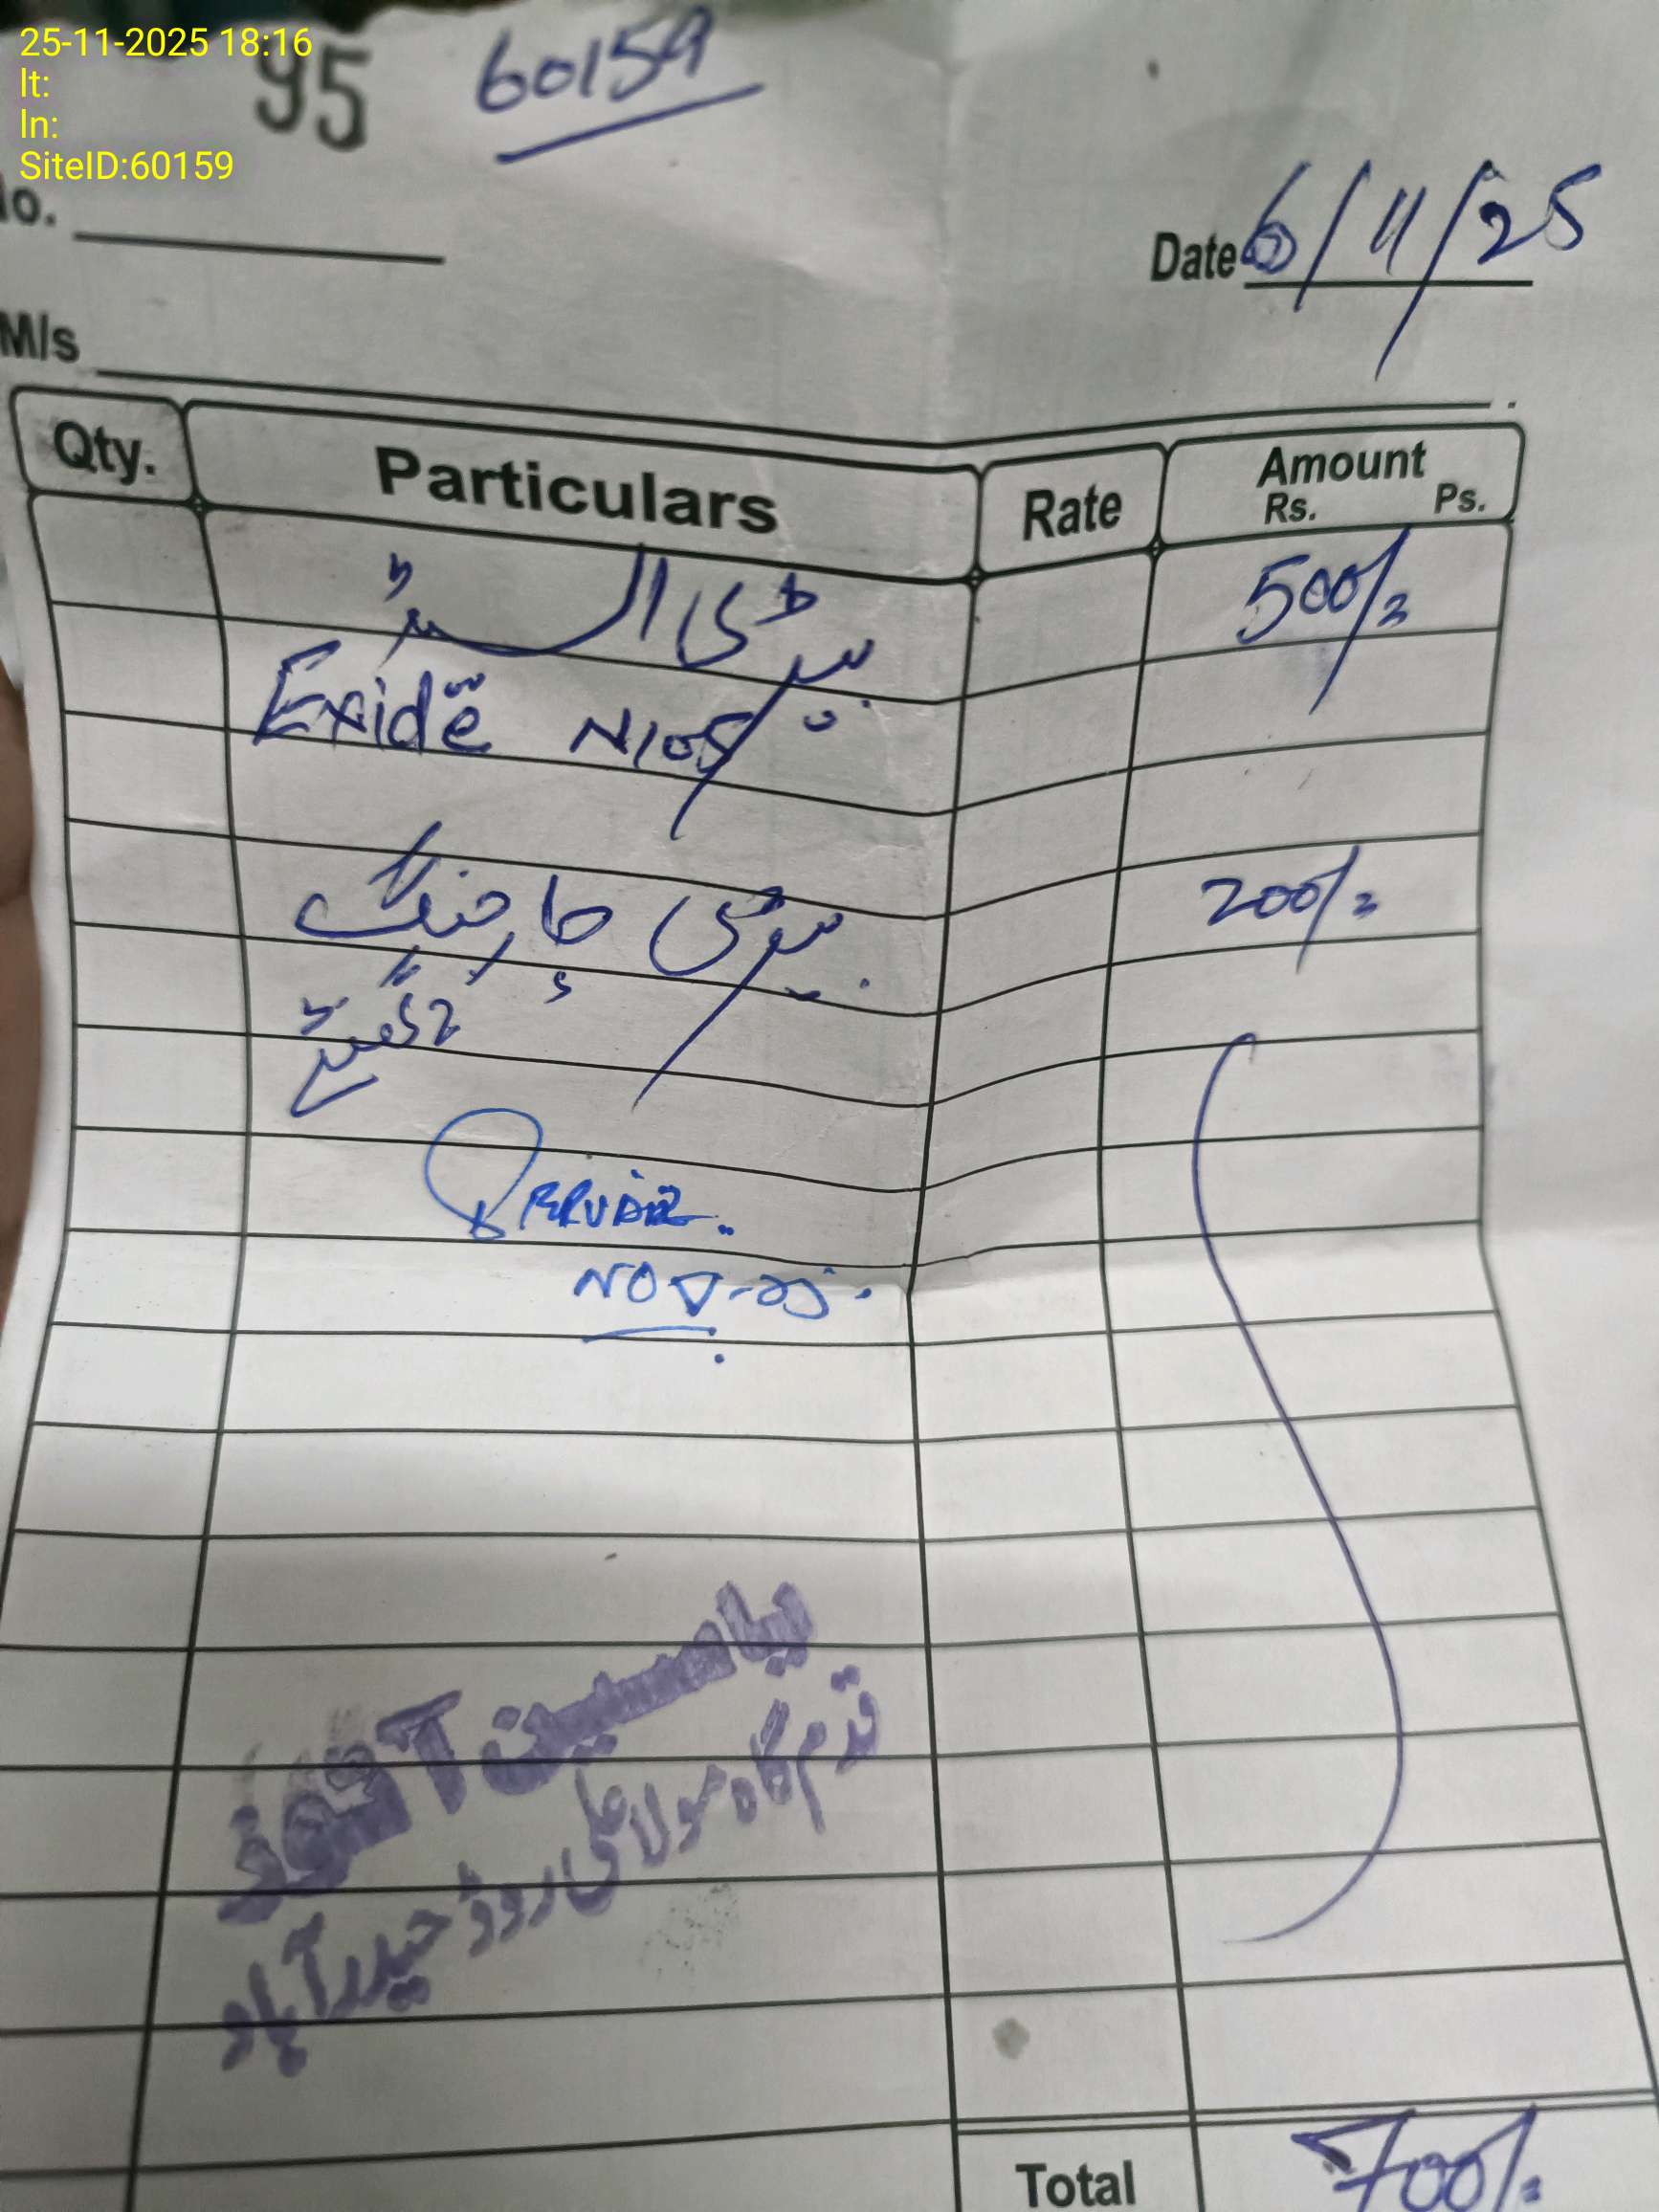 25-11-2025 18:16
lt:
ln:
SiteID:60159
95 60159
No.
Date 6/11/25
M/s
Qty. Particulars Rate Amount Rs. Ps.
500/=
Exide N105
بیٹری چارجنگ 200/=
NOV-25
یاسین آٹوز
قدم گاہ مولا علی روڈ حیدرآباد
Total 700/=